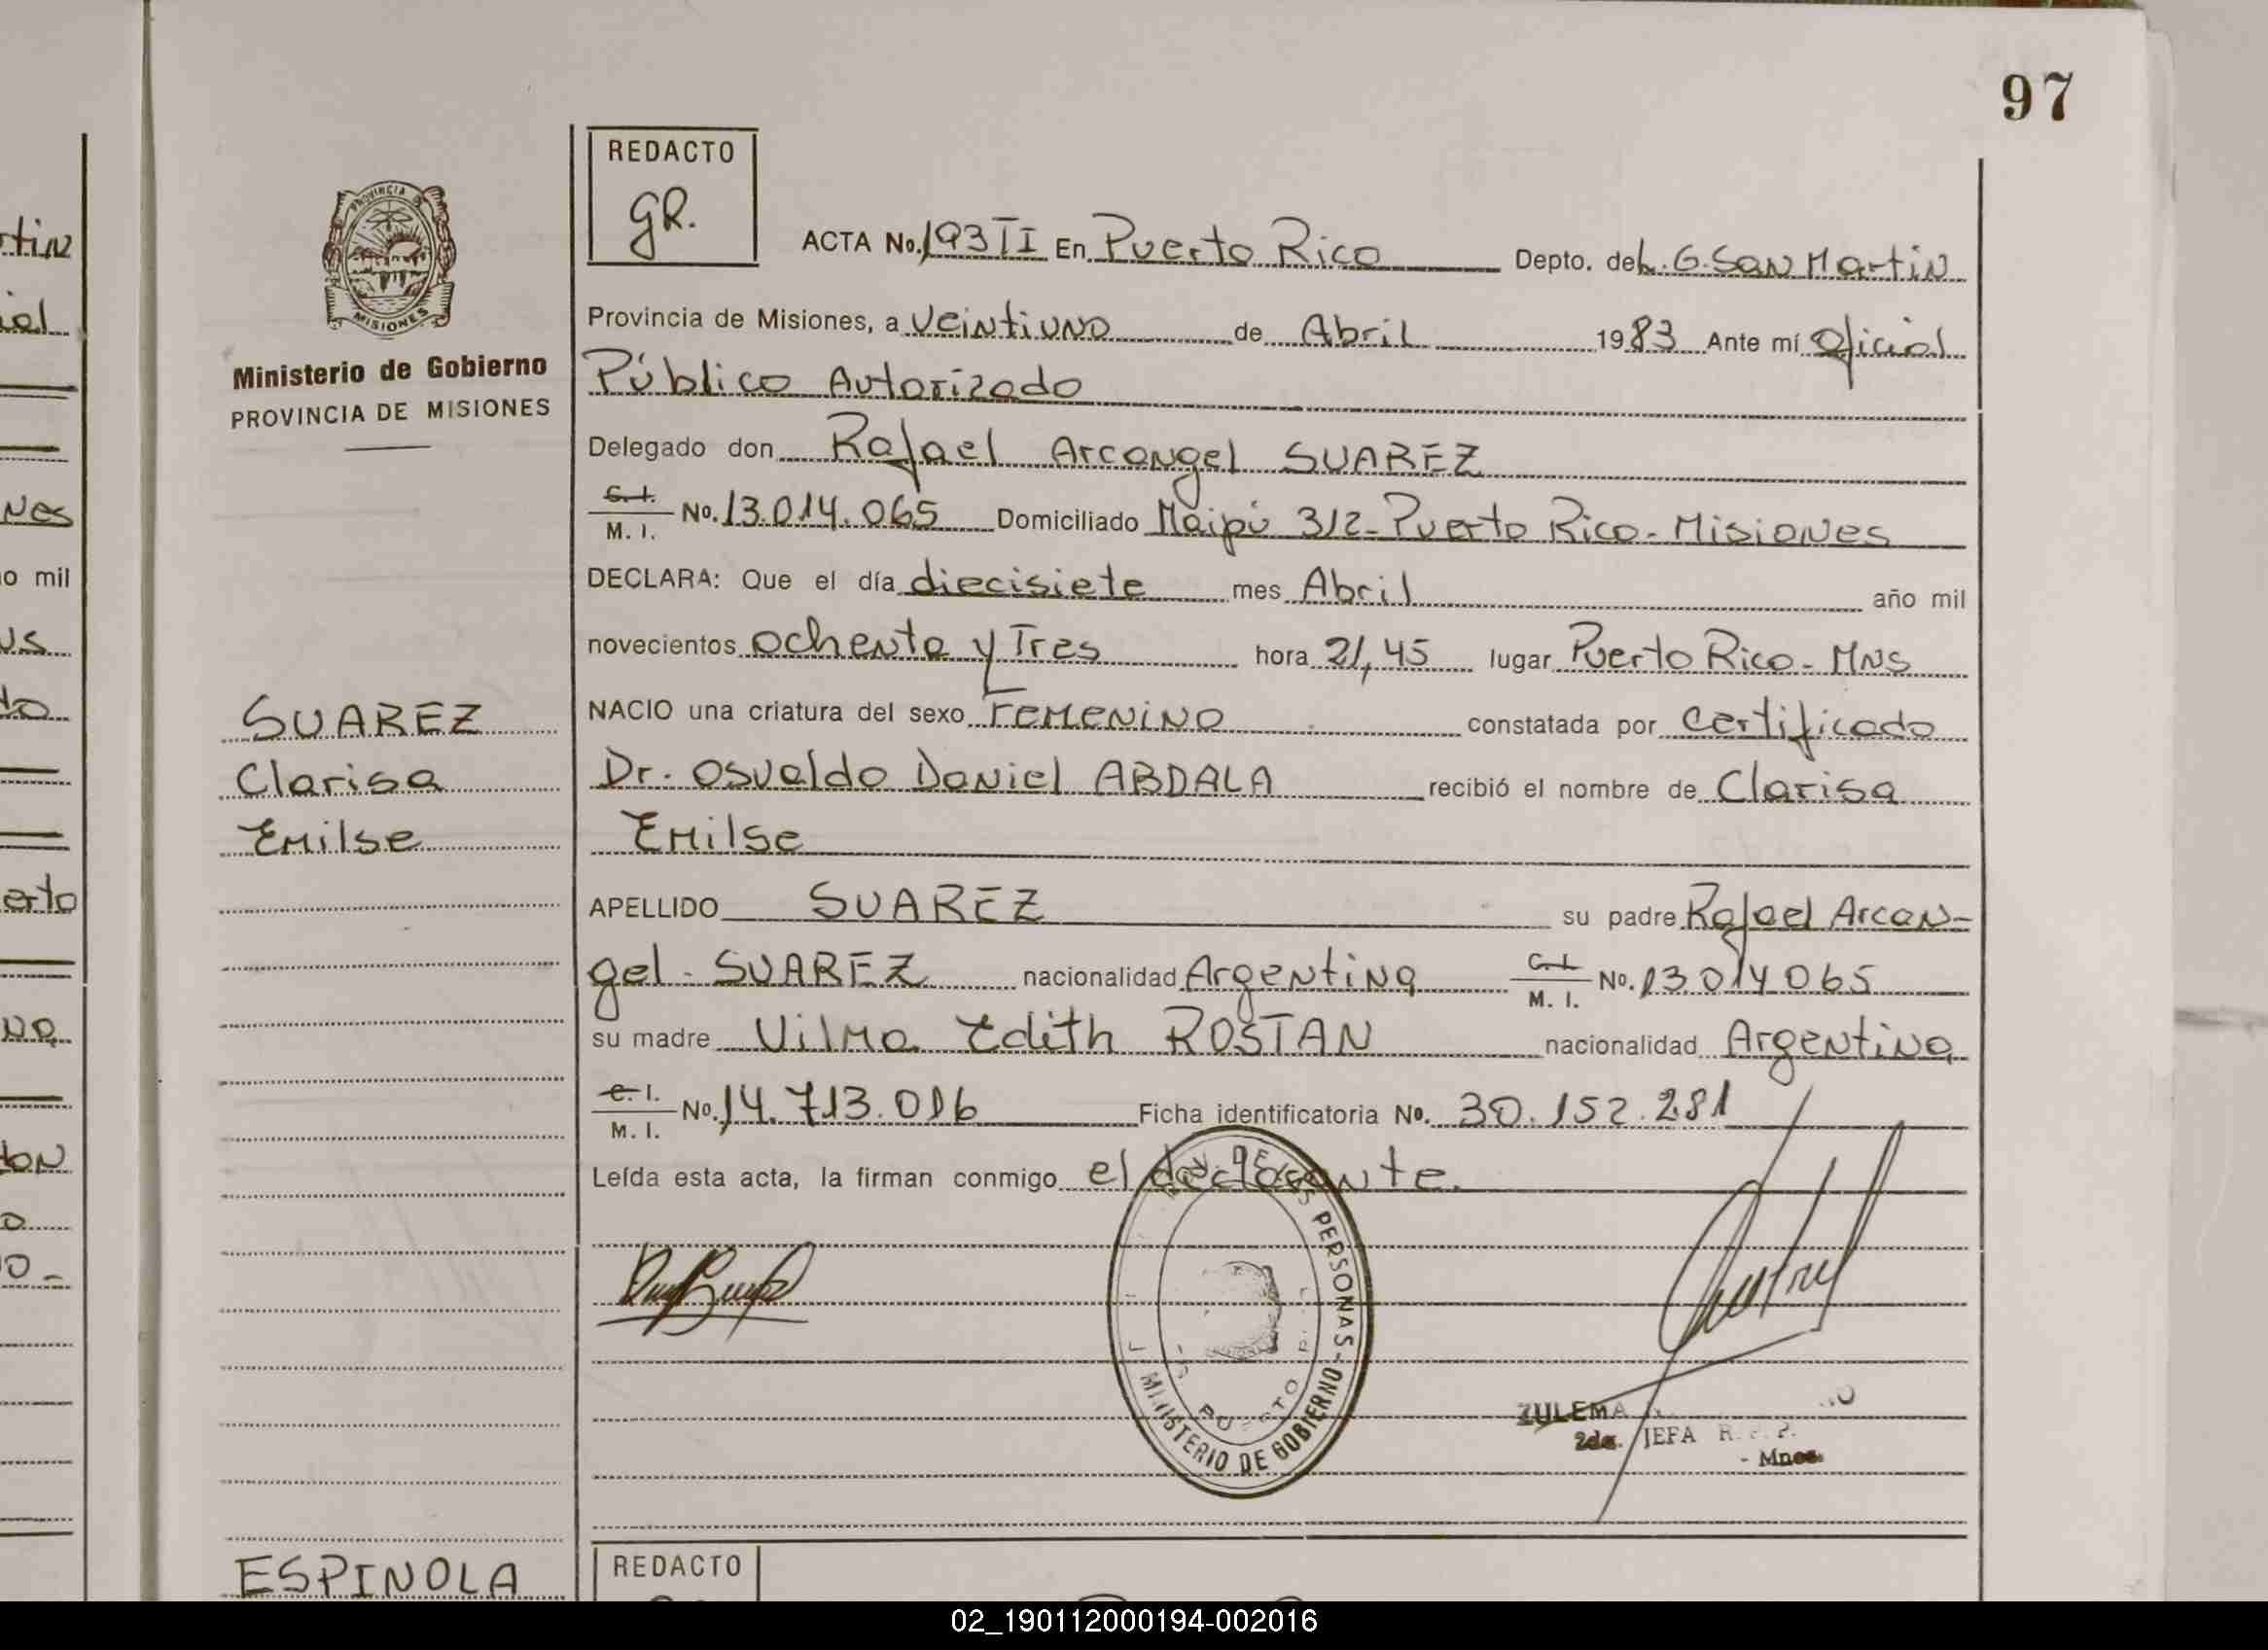 97
REDACTO
GR.
PROVINCIA DE
MISIONES
Ministerio de Gobierno
PROVINCIA DE MISIONES
ACTA No. 193 II En Puerto Rico Depto. de L. G. San Martin
Provincia de Misiones, a veintiuno de Abril 1983 Ante mí Oficial
Público Autorizado
Delegado don Rafael Arcangel SUAREZ
C. I. / M. I. No. 13.014.065 Domiciliado Maipú 312 - Puerto Rico - Misiones
DECLARA: Que el día diecisiete mes Abril año mil
novecientos ochenta y Tres hora 21,45 lugar Puerto Rico - Mns
NACIO una criatura del sexo Femenino constatada por certificado
Dr. Osvaldo Daniel ABDALA recibió el nombre de Clarisa
Emilse
APELLIDO SUAREZ su padre Rafael Arcan-
gel - SUAREZ nacionalidad Argentina C. I. / M. I. No. 13014065
su madre Vilma Edith ROSTAN nacionalidad Argentina
C. I. / M. I. No. 14.713.016 Ficha identificatoria No. 30.152.281
Leída esta acta, la firman conmigo el declarante.
SUAREZ
Clarisa
Emilse
PERSONAS - MINISTERIO DE GOBIERNO
ZULEMA
2da. JEFA R.
- Mnes.
ESPINOLA
REDACTO
tin
ial
nes
o mil
us
do
erto
na
ton
o
o -
02_190112000194-002016